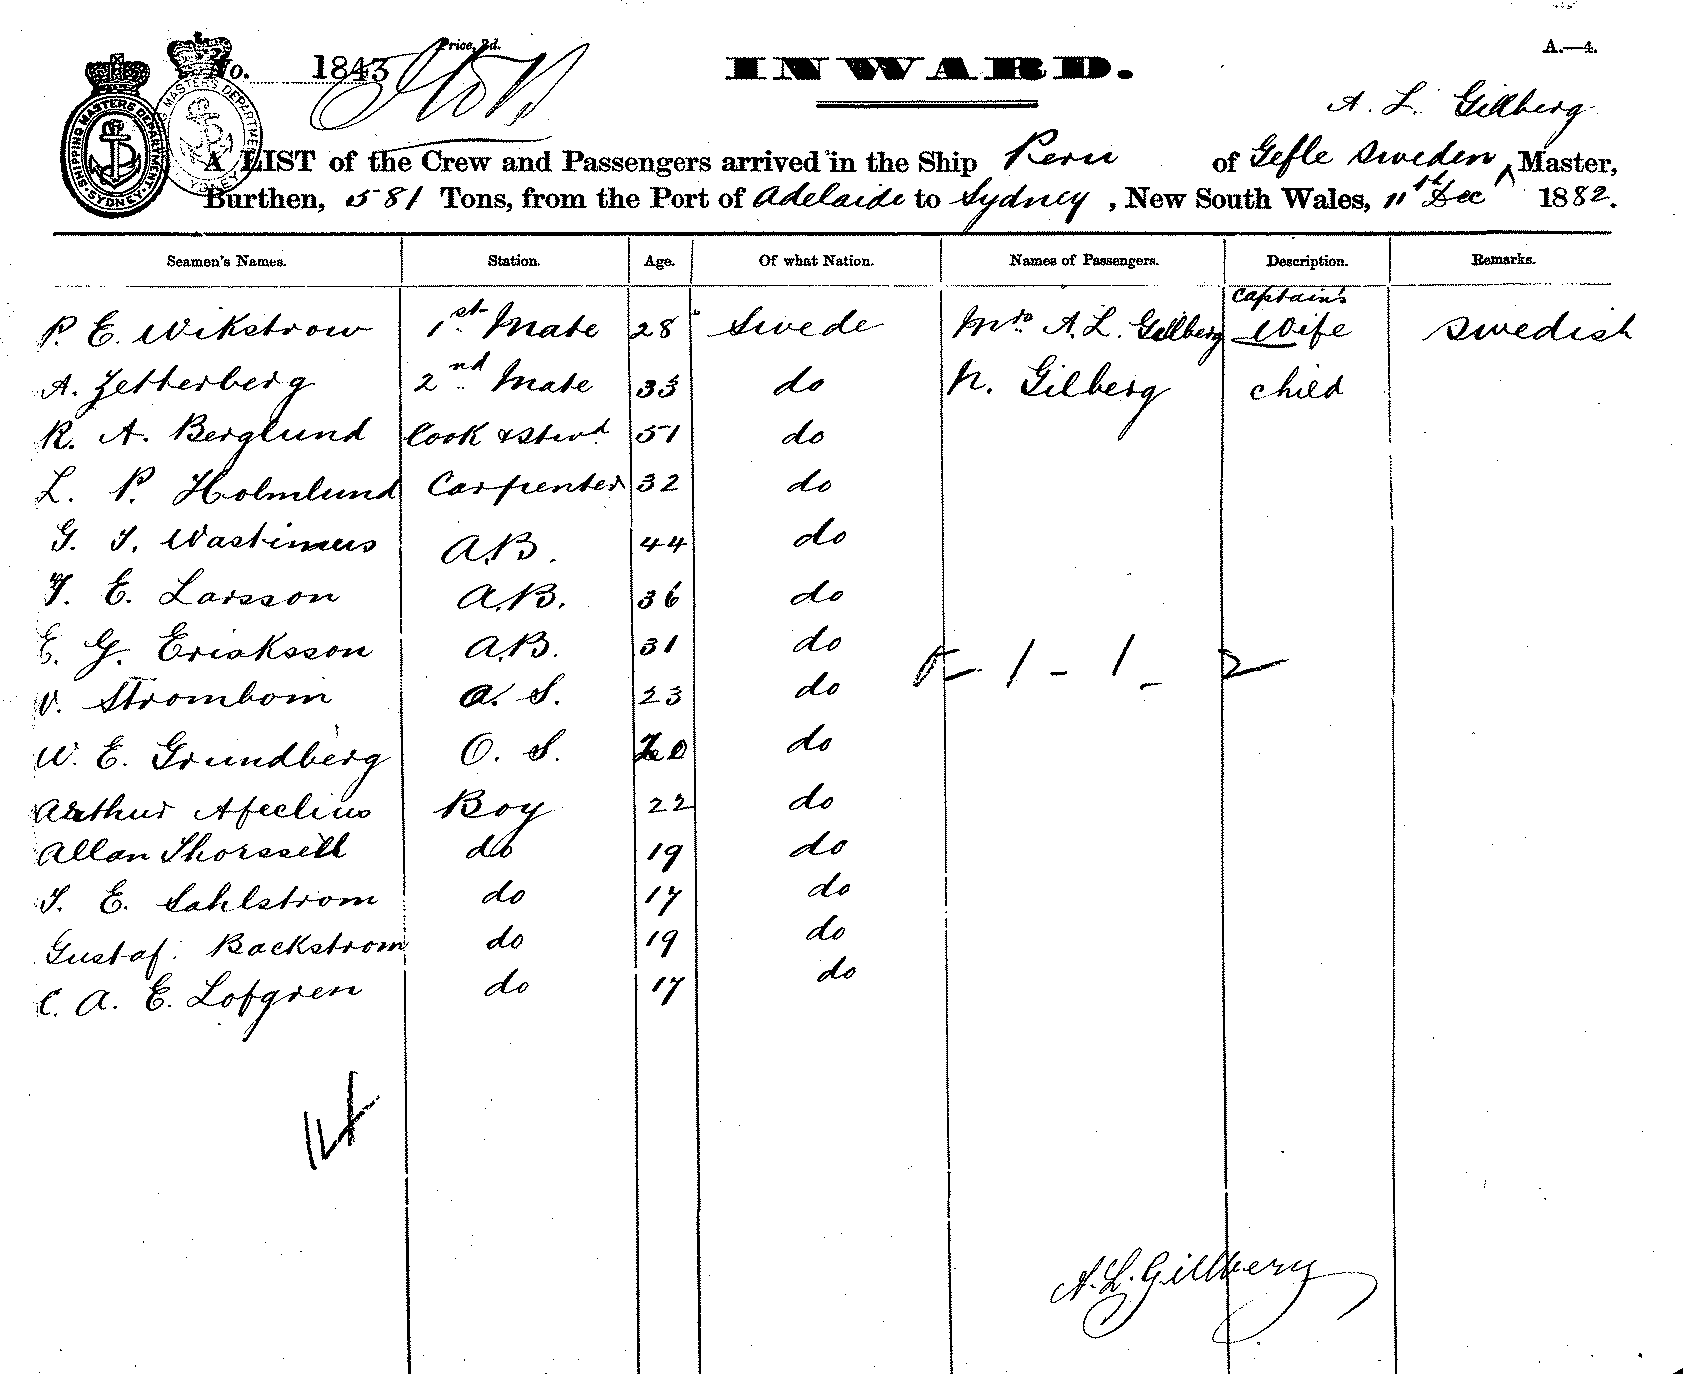 A.—4.
Price, 2d.
No. 1843
INWARD.
A. L. Gillberg
SHIPPING MASTERS DEPARTMENT SYDNEY
A LIST of the Crew and Passengers arrived in the Ship Peru of Gefle Sweden, Master,
Burthen, 581 Tons, from the Port of Adelaide to Sydney, New South Wales, 11th Dec 1882.
Seamen's Names. Station. Age. Of what Nation. Names of Passengers. Description. Remarks.
P. E. Wikstrow 1st Mate 28 Swede Mrs A. L. Gillberg Captain's Wife Swedish
A. Zetterberg 2nd Mate 33 do N. Gilberg child
R. A. Berglund Cook & Stwd 51 do
L. P. Holmlund Carpenter 32 do
G. T. Wastinus A.B. 44 do
T. E. Larsson A.B. 36 do
E. G. Eriaksson A.B. 31 do
V. Strombom O. S. 23 do
W. E. Grundberg O. S. 20 do
Arthur Afeelius Boy 22 do
Allan Thorssell do 19 do
T. E. Sahlstrom do 17 do
Gustaf. Backstrom do 19 do
C. A. E. Lofgren do 17 do
1 - 1 - 2
14
A. L. Gillberg